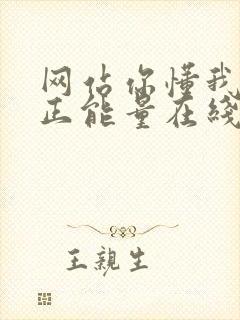 网站你懂我
正能量在线
王親生